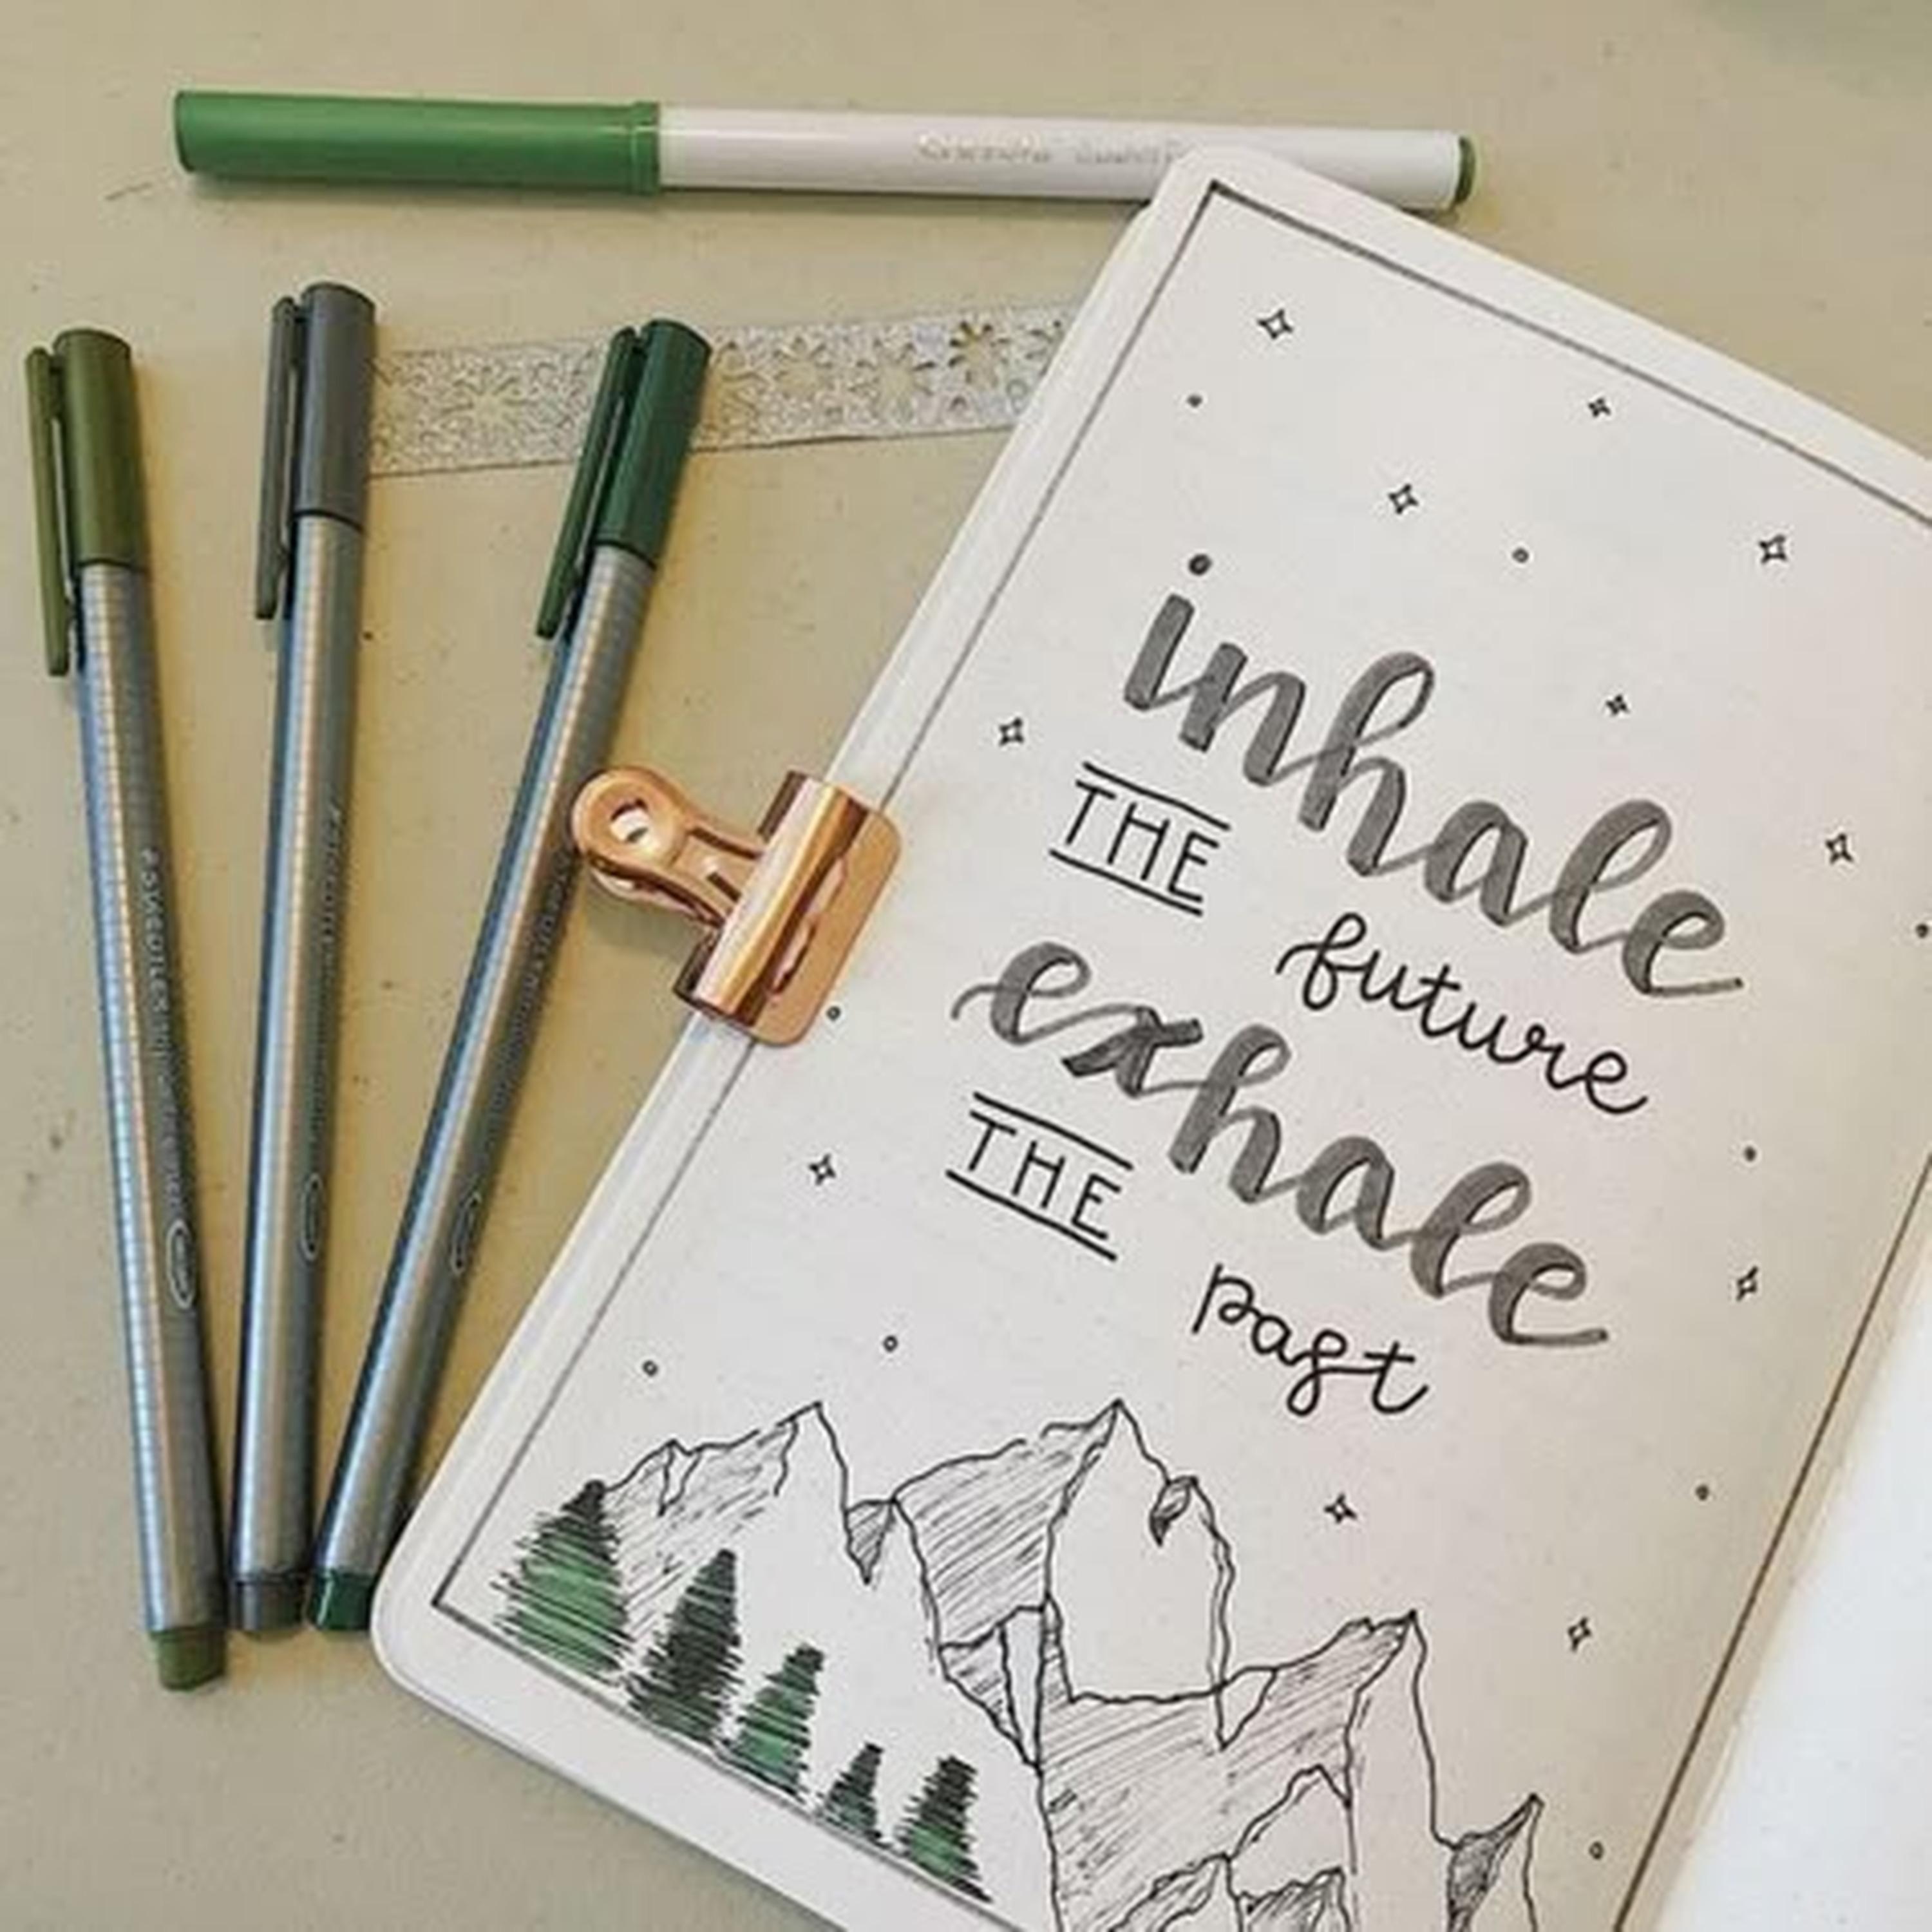 inhale
THE
future
exhale
THE
past